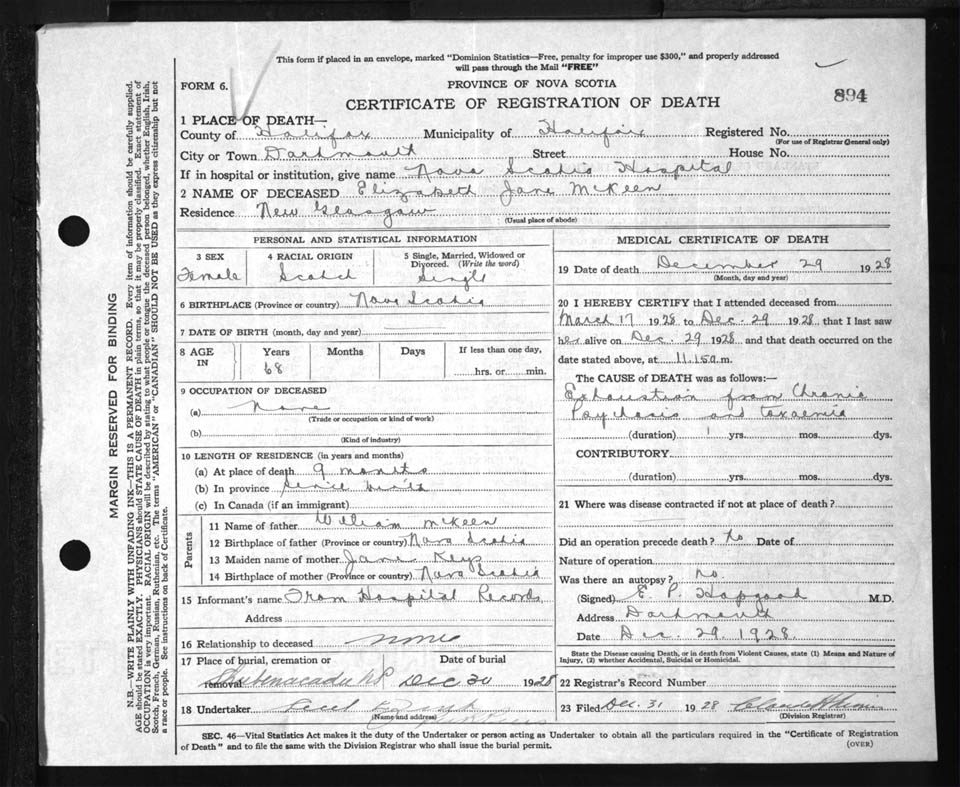 This form if placed in an envelope, marked "Dominion Statistics—Free, penalty for improper use $300," and properly addressed
will pass through the Mail "FREE"
FORM 6.
PROVINCE OF NOVA SCOTIA
894
CERTIFICATE OF REGISTRATION OF DEATH
1 PLACE OF DEATH—
County of Halifax Municipality of Halifax Registered No.
(For use of Registrar General only)
City or Town Dartmouth Street House No.
If in hospital or institution, give name Nova Scotia Hospital
2 NAME OF DECEASED Elizabeth Jane McKeen
Residence New Glasgow
(Usual place of abode)
PERSONAL AND STATISTICAL INFORMATION
3 SEX 4 RACIAL ORIGIN 5 Single, Married, Widowed or Divorced. (Write the word)
Female Scotch Single
6 BIRTHPLACE (Province or country) Nova Scotia
7 DATE OF BIRTH (month, day and year)
8 AGE IN Years Months Days If less than one day,
68 hrs. or min.
9 OCCUPATION OF DECEASED
(a) None
(Trade or occupation or kind of work)
(b)
(Kind of industry)
10 LENGTH OF RESIDENCE (in years and months)
(a) At place of death 9 months
(b) In province Since birth
(c) In Canada (if an immigrant)
Parents
11 Name of father William McKeen
12 Birthplace of father (Province or country) Nova Scotia
13 Maiden name of mother Jane Keys
14 Birthplace of mother (Province or country) Nova Scotia
15 Informant's name From Hospital Records
Address
16 Relationship to deceased None
17 Place of burial, cremation or removal Date of burial
Shubenacadie NS Dec 30 1928
18 Undertaker
(Name and address)
MEDICAL CERTIFICATE OF DEATH
19 Date of death December 29 1928
(Month, day and year)
20 I HEREBY CERTIFY that I attended deceased from
March 17 1928 to Dec. 29 1928 that I last saw
her alive on Dec. 29 1928 and that death occurred on the
date stated above, at 11.15 a.m.
The CAUSE OF DEATH was as follows:—
Exhaustion from Chronic
Psychosis and toxaemia
(duration) 1 yrs. mos. dys.
CONTRIBUTORY
(duration) yrs. mos. dys.
21 Where was disease contracted if not at place of death?
Did an operation precede death? No Date of
Nature of operation
Was there an autopsy? no.
(Signed) E. P. Hapgood M.D.
Address Dartmouth
Date Dec. 29 1928.
State the Disease causing Death, or in death from Violent Causes, state (1) Means and Nature of
Injury, (2) whether Accidental, Suicidal or Homicidal.
22 Registrar's Record Number
23 Filed Dec. 31 1928
(Division Registrar)
SEC. 46—Vital Statistics Act makes it the duty of the Undertaker or person acting as Undertaker to obtain all the particulars required in the "Certificate of Registration
of Death" and to file the same with the Division Registrar who shall issue the burial permit.
(OVER)
MARGIN RESERVED FOR BINDING
N.B.—WRITE PLAINLY WITH UNFADING INK—THIS IS A PERMANENT RECORD. Every item of information should be carefully supplied.
AGE should be stated EXACTLY. PHYSICIANS should STATE CAUSE OF DEATH in plain terms, so that it may be properly classified. Exact statement of
OCCUPATION is very important. RACIAL ORIGIN will be described by stating to what people or tongue the deceased person belonged, whether English, Irish,
Scotch, French, German, Russian, Ruthenian, etc. The terms "AMERICAN" or "CANADIAN" SHOULD NOT BE USED as they express citizenship but not
a race or people. See instructions on back of Certificate.